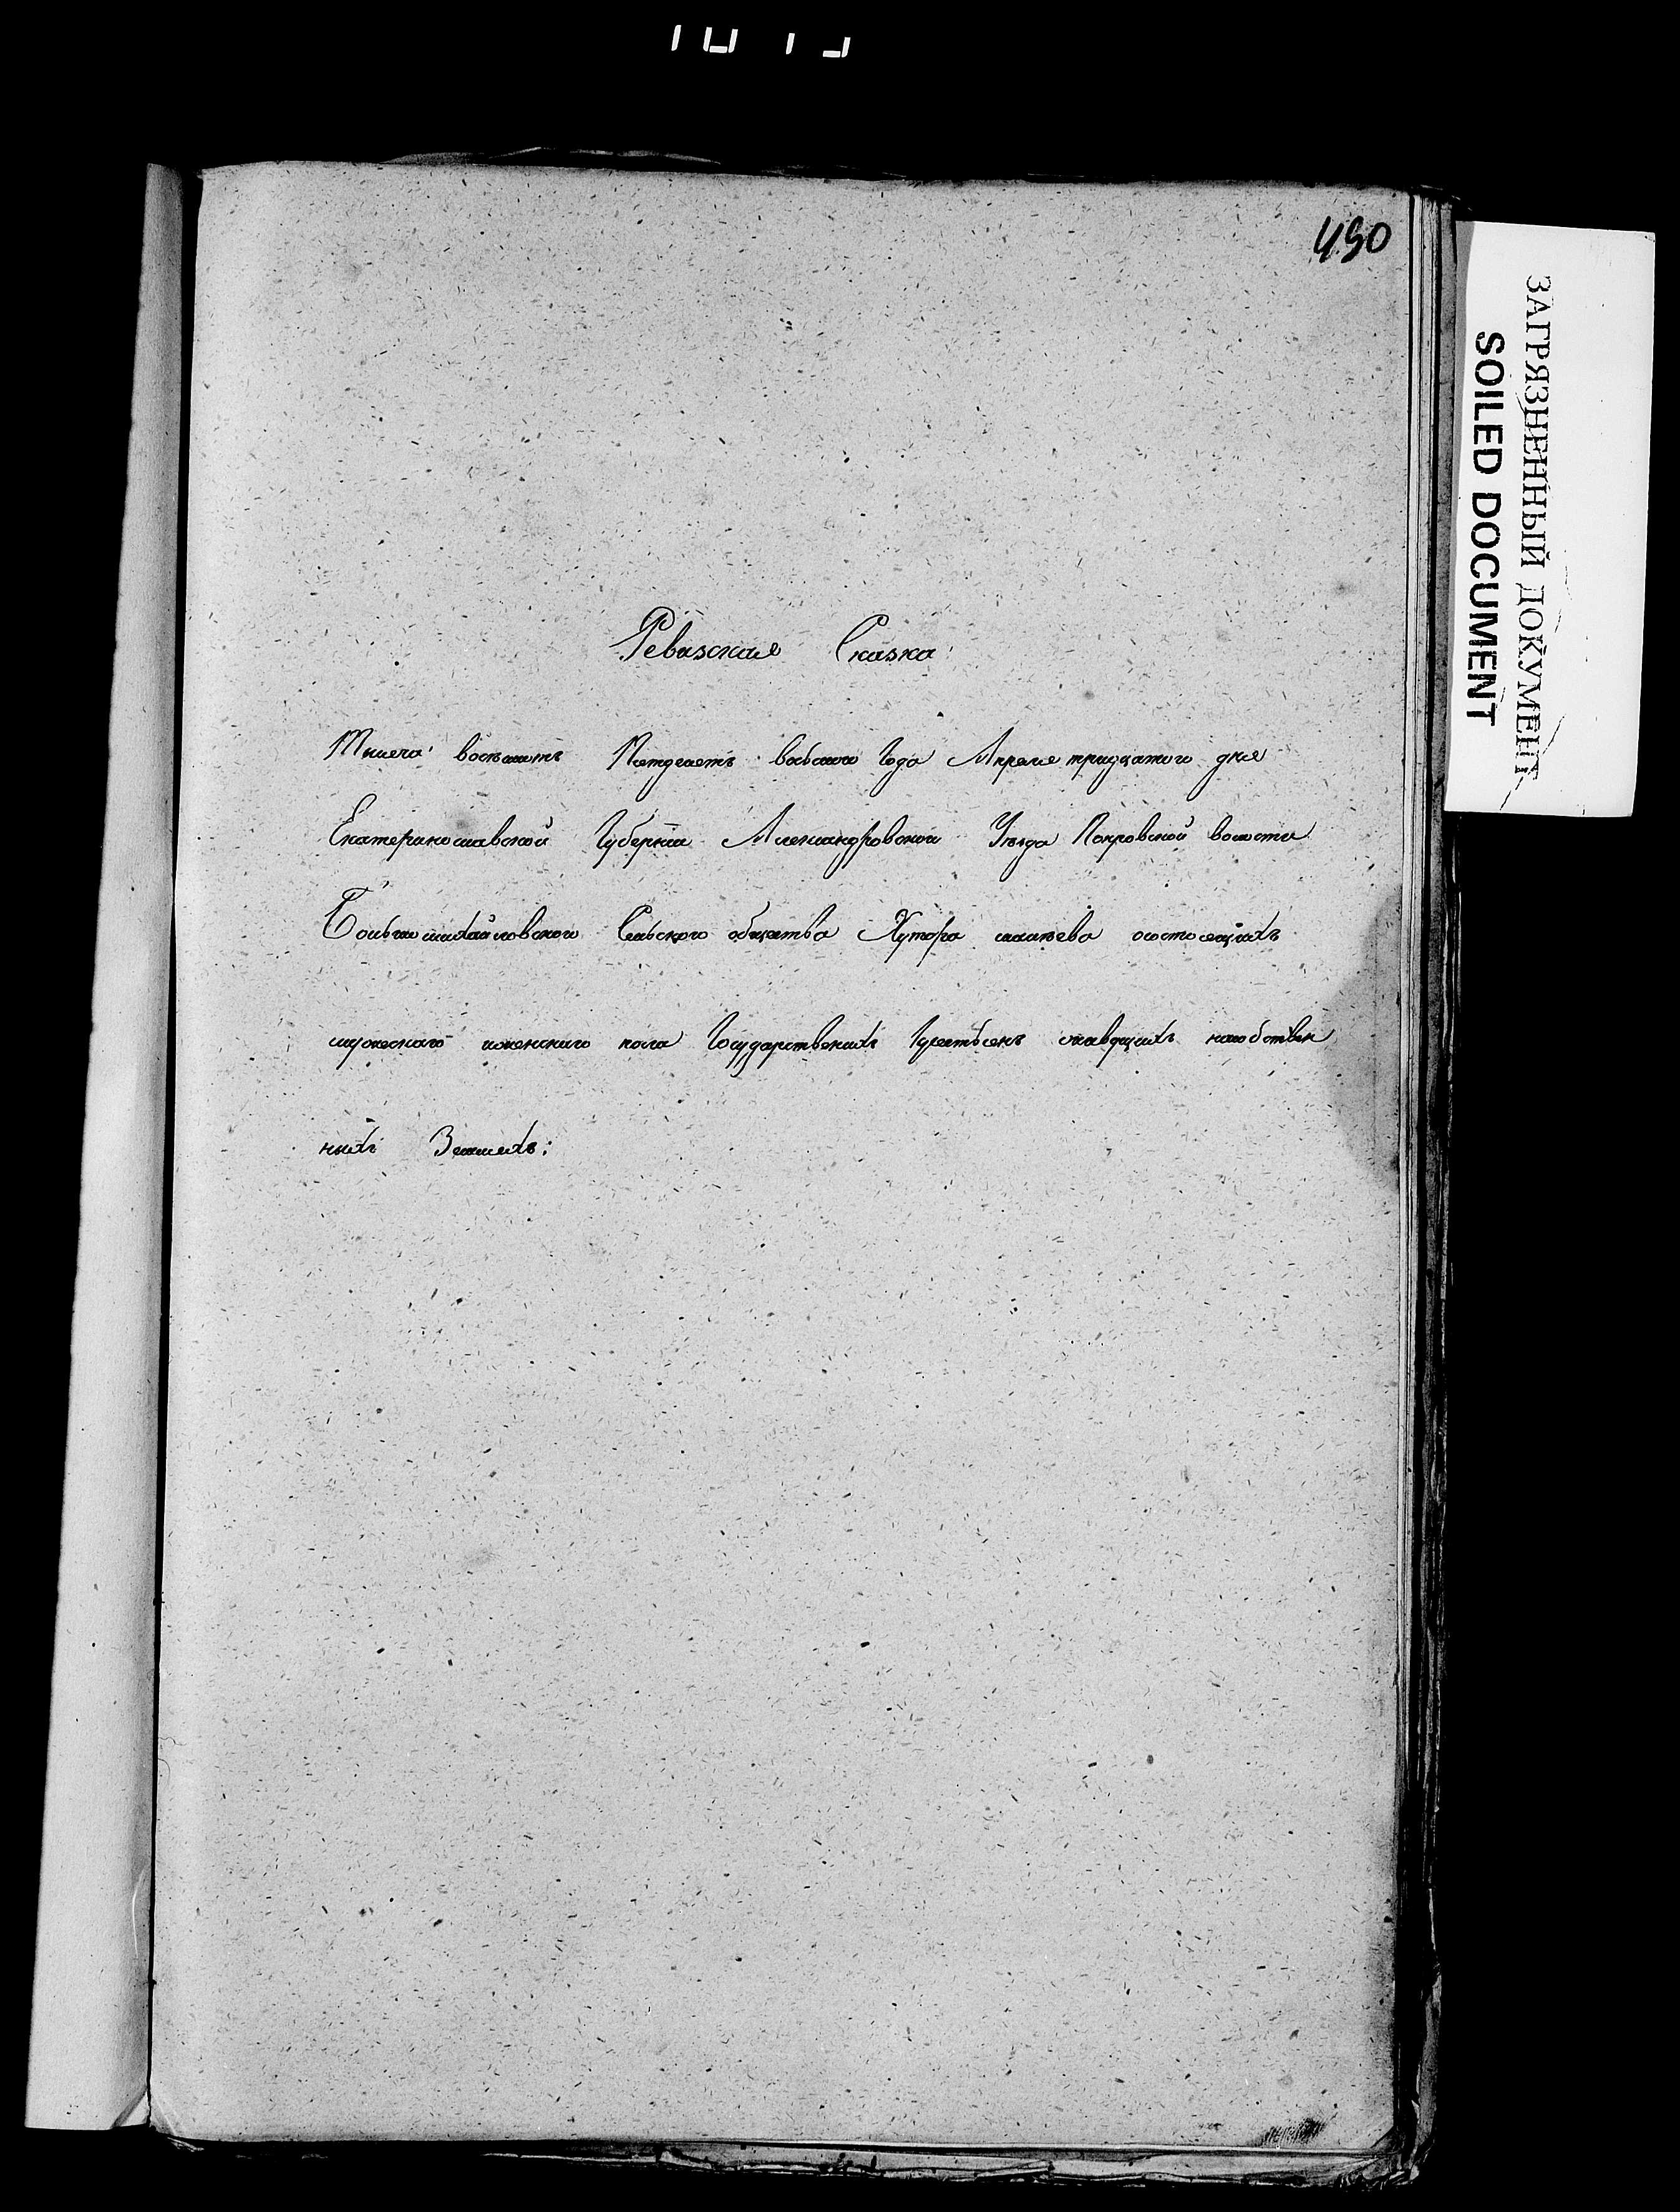 490
ЗАГРЯЗНЕННЫЙ ДОКУМЕНТ
SOILED DOCUMENT
Ревизская Сказка
Тысеча восемсотъ Петдесетъ восмого Года Апреля тридцатого дня
Екатеринославской Губернии Александровского Уезда Покровской волости
Больше михайловского Сельского общества Хутора
мужескаго иженского пола Государственихъ
ныхъ Землехъ: